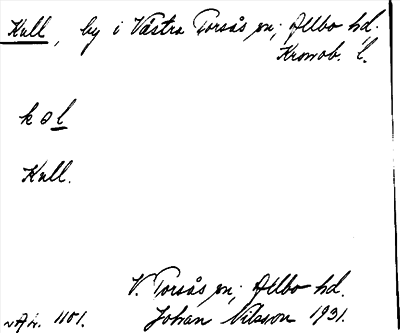 Kull, by i Västra Torsås sn; Allbo hd.
Kronob. l.
k o l
Kull.
V. Torsås sn; Allbo hd.
Johan Nilsson 1931.
1101.